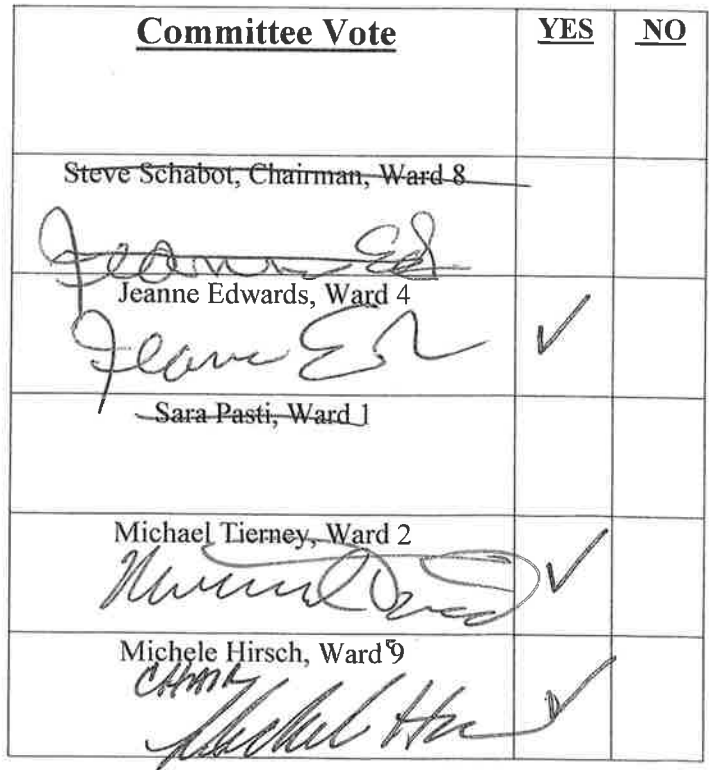 Committee Vote YES NO
Steve Schabot, Chairman, Ward 8
Jeanne Ed
Jeanne Edwards, Ward 4
Jeanne Ed ✓
Sara Pasti, Ward 1
Michael Tierney, Ward 2
✓
Michele Hirsch, Ward 9
CHAIR
✓